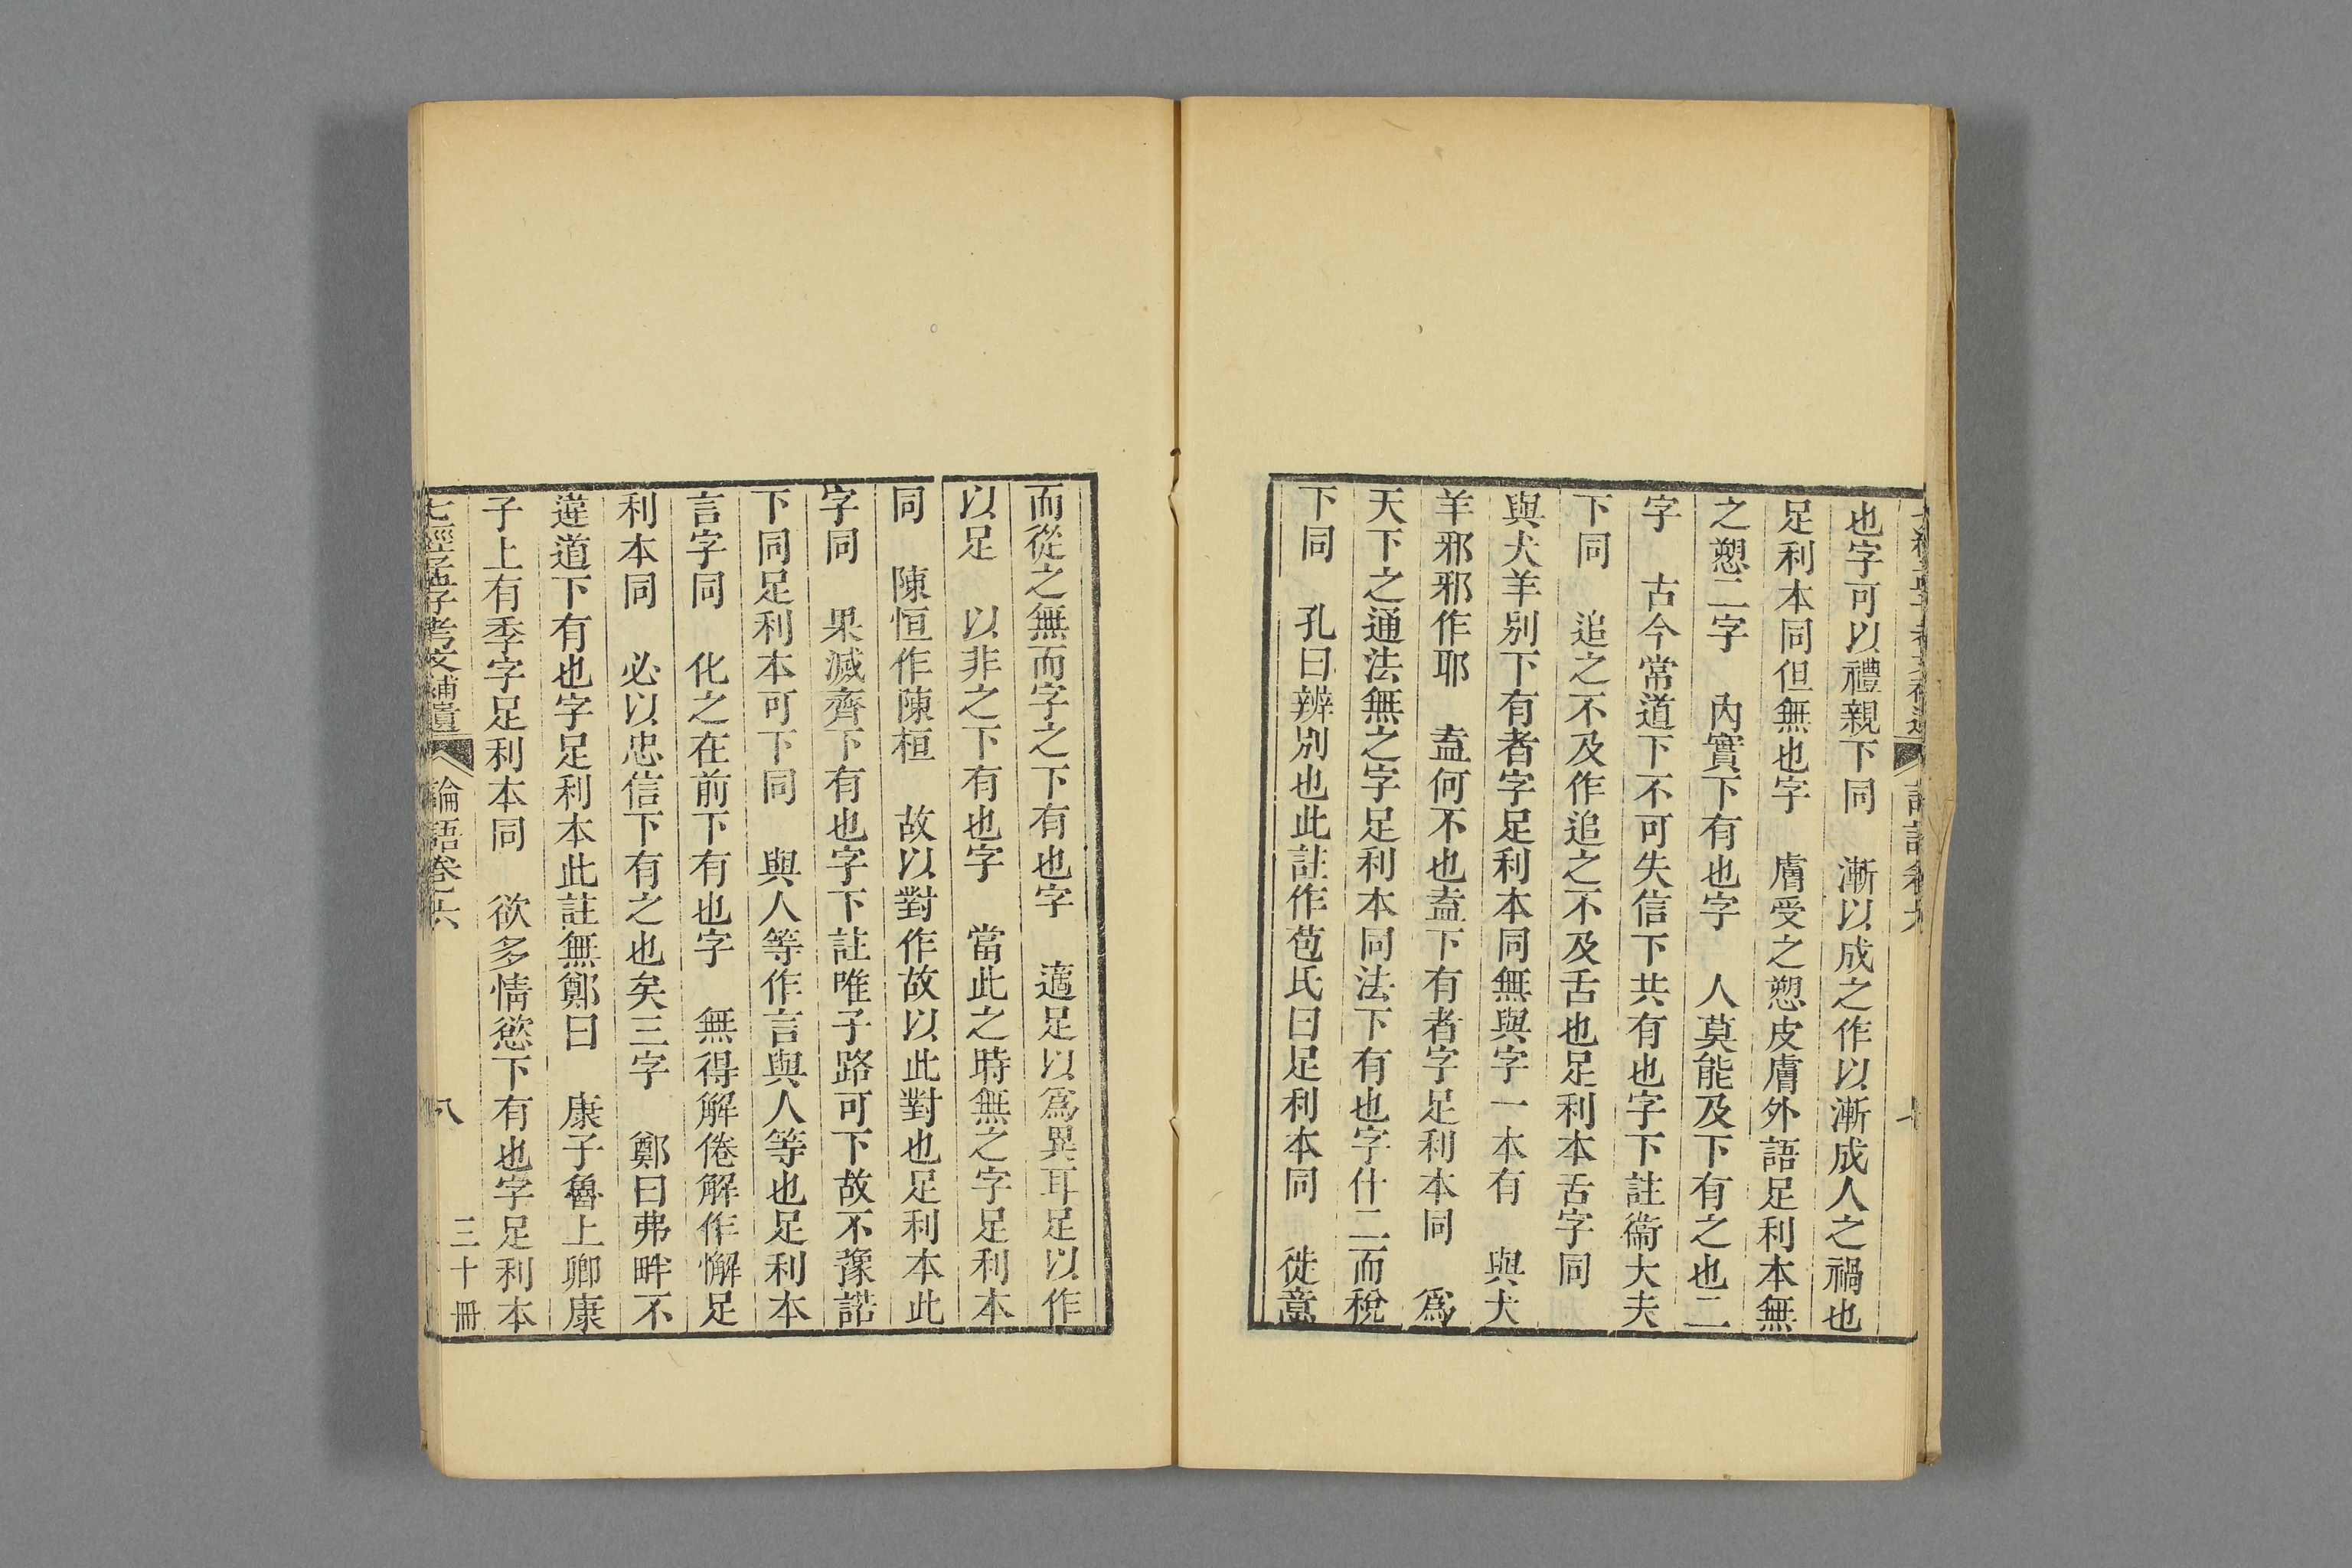 也字可以禮親下同　漸以成之作以漸成人之禍也
足利本同但無也字　膚受之愬皮膚外語足利本無
之愬二字　內實下有也字　人莫能及下有之也二
字　古今常道下不可失信下共有也字下註衞大夫
下同　追之不及作追之不及舌也足利本舌字同
與犬羊別下有者字足利本同無與字一本有　與犬
羊邪邪作耶　盍何不也盍下有者字足利本同　爲
天下之通法無之字足利本同法下有也字什二而稅
下同　孔曰辨別也此註作苞氏曰足利本同　徙意
而從之無而字之下有也字　適足以爲異耳足以作
以足　以非之下有也字　當此之時無之字足利本
同　陳恒作陳桓　故以對作故以此對也足利本此
字同　果滅齊下有也字下註唯子路可下故不豫諾
下同足利本可下同　與人等作言與人等也足利本
言字同　化之在前下有也字　無得解倦解作懈足
利本同　必以忠信下有之也矣三字　鄭曰弗畔不
違道下有也字足利本此註無鄭曰　康子魯上卿康
子上有季字足利本同　欲多情慾下有也字足利本
七經孟子考文補遺　論語卷六　八　三十冊